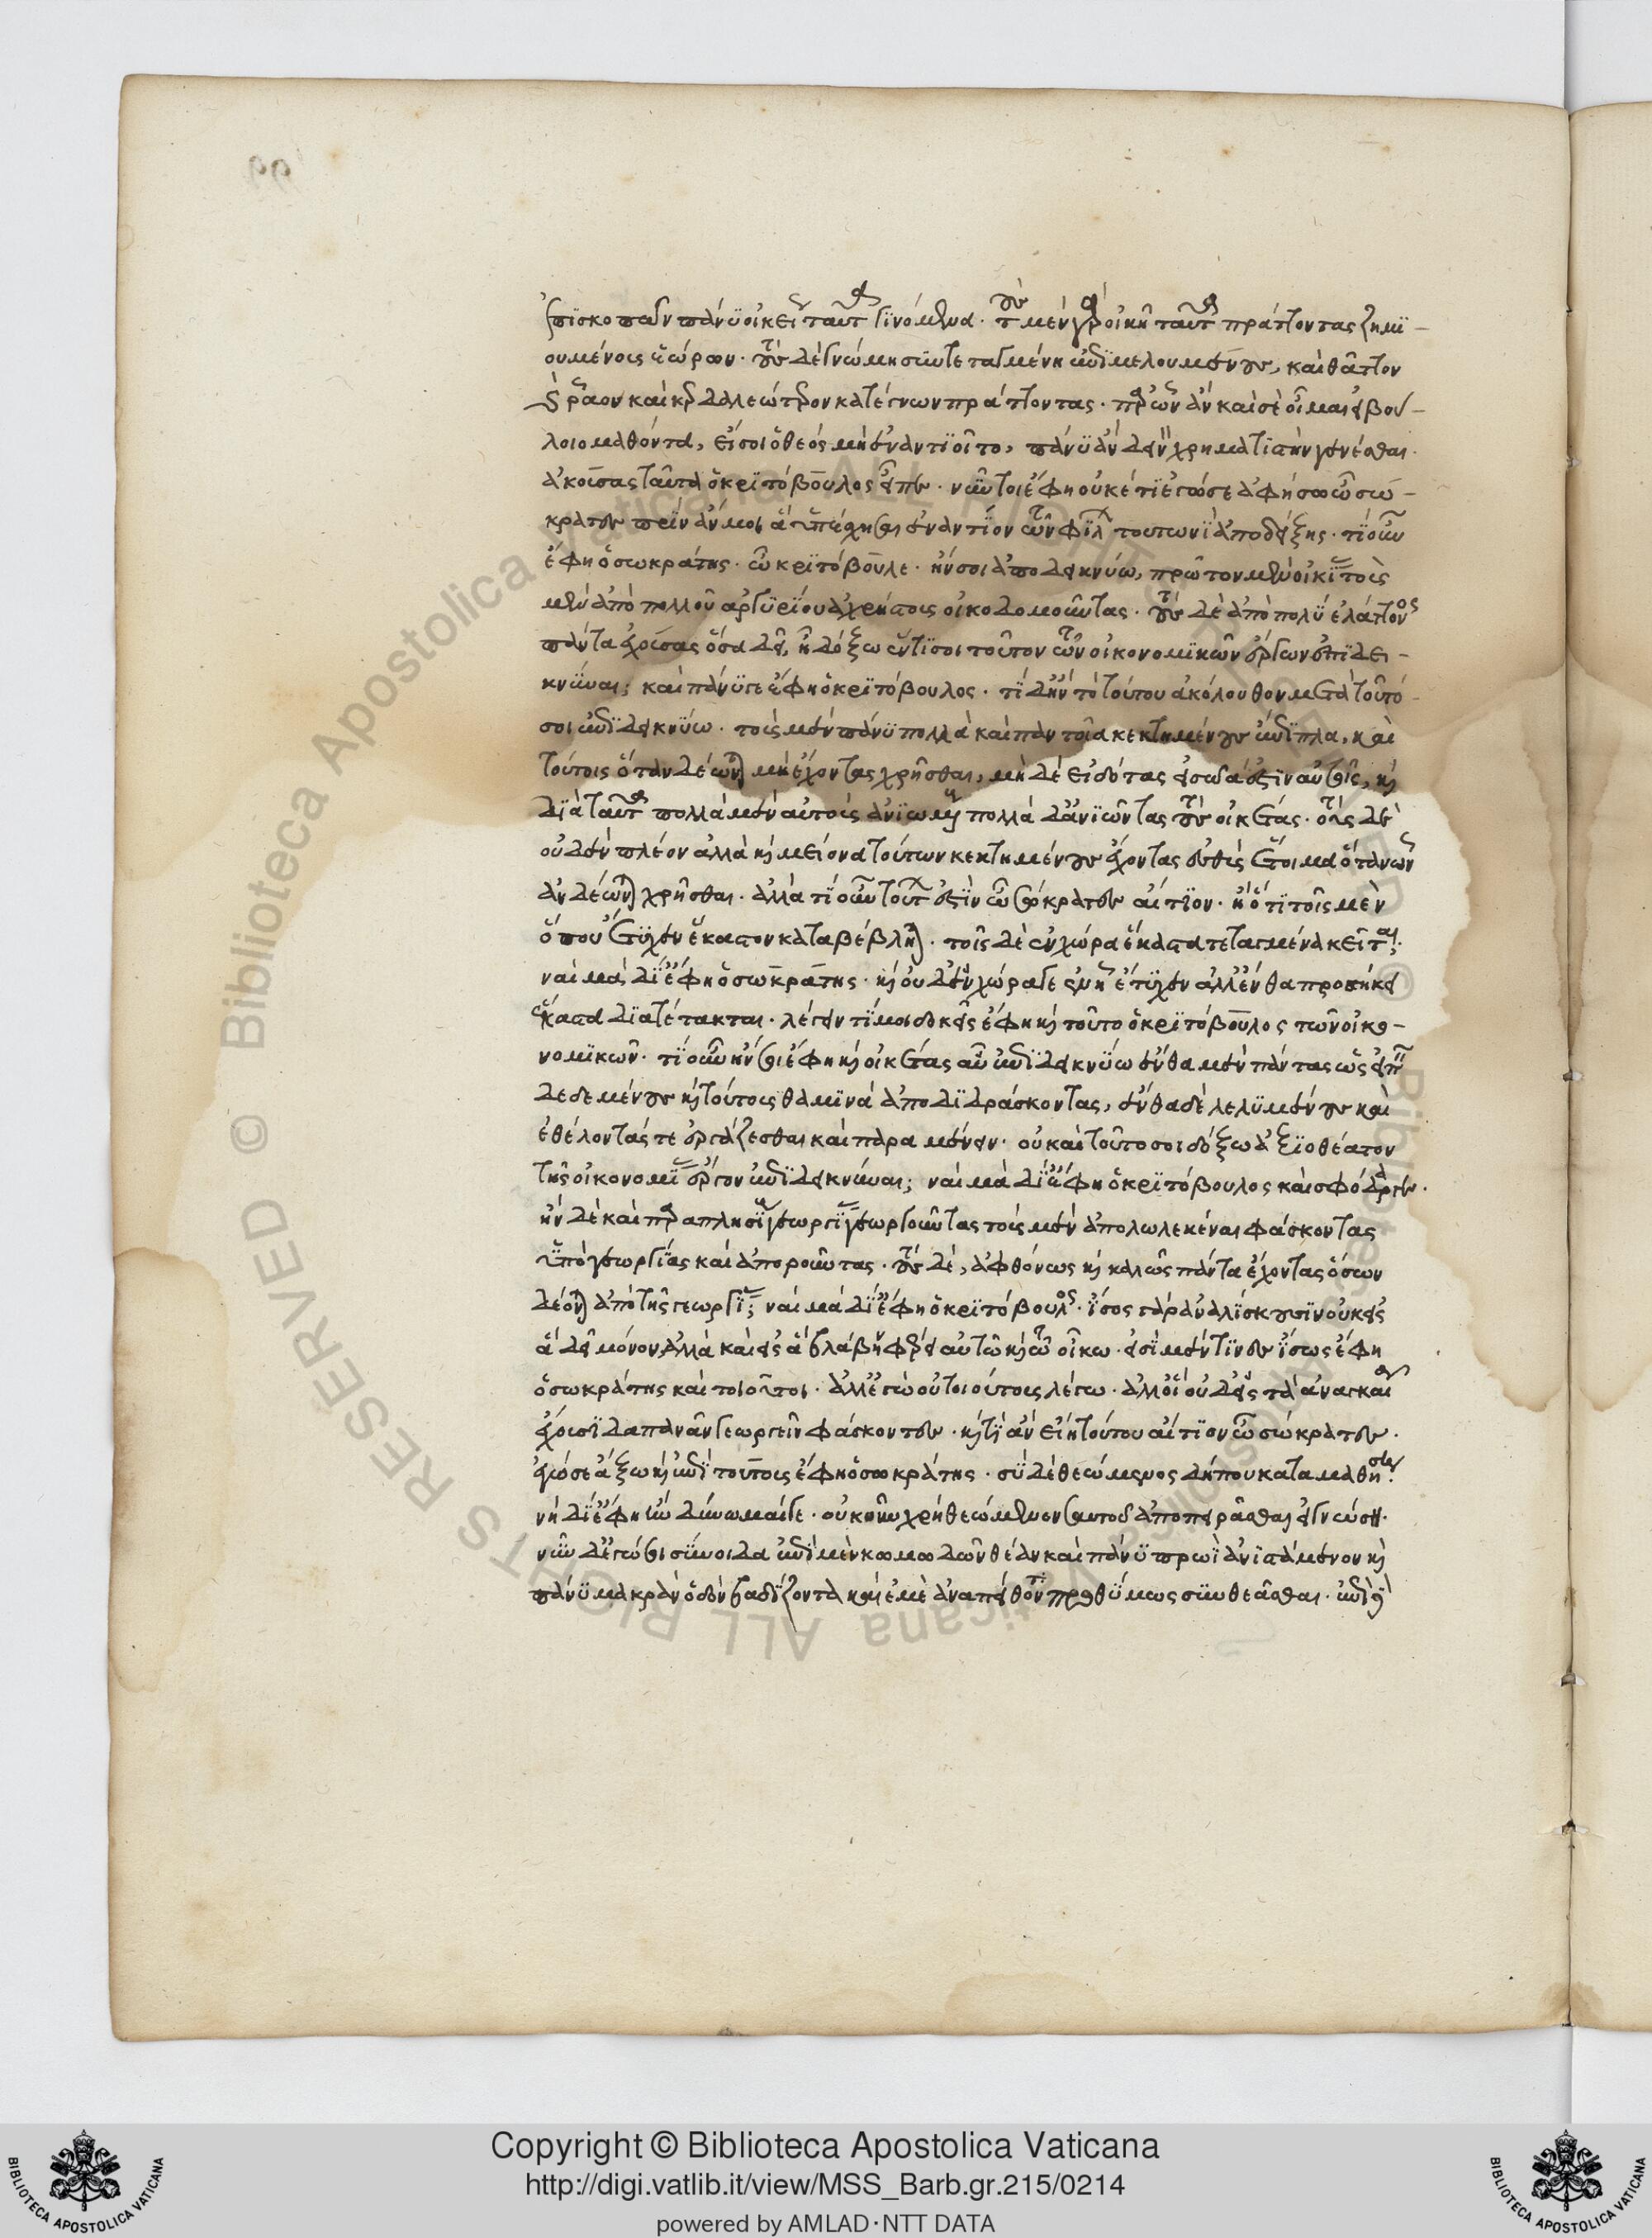 ἐπισκοπῶν πάνυ οἰκείως ταῦτα γινόμενα. τοὺς μὲν γὰρ εἰκῇ ταῦτα πράττοντας ζημι-
ουμένους ἑώρων. τοὺς δὲ γνώμῃ συντεταγμένῃ ἐπιμελουμένους, καὶ θᾶττον
καὶ ῥᾷον καὶ κερδαλεώτερον κατέγνων πράττοντας. παρ' ὧν ἂν καὶ σὲ οἶμαι εἰ βού-
λοιο μαθόντα, εἴ σοι ὁ θεὸς μὴ ἐναντιοῖτο, πάνυ ἂν δεινὸν χρηματιστὴν γενέσθαι.
ἀκούσας ταῦτα ὁ κριτόβουλος εἶπεν. νῦν τοι ἔφη οὐκέτι ἐγώ σε ἀφήσω ὦ σώ-
κρατες πρὶν ἄν μοι ἃ ὑπέσχησαι ἐναντίον τῶν φίλων τουτωνὶ ἀποδείξῃς. τί οὖν
ἔφη ὁ σωκράτης. ὦ κριτόβουλε. ἤν σοι ἀποδεικνύω, πρῶτον μὲν οἰκίας τοὺς
μὲν ἀπὸ πολλοῦ ἀργυρίου ἀχρήστους οἰκοδομοῦντας. τοὺς δὲ ἀπὸ πολὺ ἐλάττονος
πάντα ἐχούσας ὅσα δεῖ, ἦ δόξω ἕν τί σοι τοῦτον τῶν οἰκονομικῶν ἔργων ἐπιδει-
κνύναι; καὶ πάνυ γε ἔφη ὁ κριτόβουλος. τί δ' ἢν τὸ τούτου ἀκόλουθον μετὰ τοῦτό
σοι ἐπιδεικνύω. τοὺς μὲν πάνυ πολλὰ καὶ παντοῖα κεκτημένους ἔπιπλα, καὶ
τούτοις ὅταν δέωνται μὴ ἔχοντας χρῆσθαι, μηδὲ εἰδότας εἰ σῶά ἐστιν αὐτοῖς, καὶ
διὰ ταῦτα πολλὰ μὲν αὐτοὺς ἀνιωμένους πολλὰ δ' ἀνιῶντας τοὺς οἰκέτας. τοὺς δὲ
οὐδὲν πλέον ἀλλὰ καὶ μείονα τούτων κεκτημένους ἔχοντας εὐθὺς ἕτοιμα ὅταν ὧν
ἂν δέωνται χρῆσθαι. ἀλλὰ τί οὖν τούτων ἐστὶν ὦ σώκρατες αἴτιον. ἢ ὅτι τοῖς μὲν
ὅπου ἔτυχεν ἕκαστον καταβέβληται. τοῖς δὲ ἐν χώρᾳ ἕκαστα τεταγμένα κεῖται.
ναὶ μὰ δί' ἔφη ὁ σωκράτης. καὶ οὐδ' ἐν χώρᾳ γε ἐν ᾗ ἔτυχεν ἀλλ' ἔνθα προσήκει
ἕκαστα διατέτακται. λέγειν τί μοι δοκεῖς ἔφη καὶ τοῦτο ὁ κριτόβουλος τῶν οἰκο-
νομικῶν. τί οὖν ἤν σοι ἔφη καὶ οἰκέτας αὖ ἐπιδεικνύω ἔνθα μὲν πάντας ὡς εἰπεῖν
δεδεμένους καὶ τούτους θαμινὰ ἀποδιδράσκοντας, ἔνθα δὲ λελυμένους καὶ
ἐθέλοντάς τε ἐργάζεσθαι καὶ παραμένειν. οὐ καὶ τοῦτο σοι δόξω ἀξιοθέατον
τῆς οἰκονομίας ἔργον ἐπιδεικνύναι; ναὶ μὰ δί' ἔφη ὁ κριτόβουλος καὶ σφόδρα γε.
ἢν δὲ καὶ παραπλησίους γεωργίας γεωργοῦντας τοὺς μὲν ἀπολωλεκέναι φάσκοντας
ὑπὸ γεωργίας καὶ ἀποροῦντας. τοὺς δὲ, ἀφθόνως καὶ καλῶς πάντα ἔχοντας ὅσων
δέονται ἀπὸ τῆς γεωργίας; ναὶ μὰ δί' ἔφη ὁ κριτόβουλος. ἴσως γὰρ ἀναλίσκουσιν οὐκ εἰς
ἃ δεῖ μόνον ἀλλὰ καὶ εἰς ἃ βλάβην φέρει αὐτῷ καὶ τῷ οἴκῳ. εἰσὶ μέν τινες ἴσως ἔφη
ὁ σωκράτης καὶ τοιοῦτοι. ἀλλ' ἐγὼ οὐ τοιούτους λέγω. ἀλλ' οἳ οὐδ' εἰς τὰ ἀναγκαῖα
ἔχουσι δαπανᾶν γεωργεῖν φάσκοντες. καὶ τί ἂν εἴη τούτου αἴτιον ὦ σώκρατες.
ἐγώ σε ἄξω καὶ ἐπὶ τούτους ἔφη ὁ σωκράτης. σὺ δὲ θεώμενος δήπου καταμαθήσει.
νὴ δί' ἔφη ἢν δύνωμαί γε. οὐκοῦν χρὴ θεώμενον σαυτοῦ ἀποπειρᾶσθαι εἰ γνώσῃ.
νῦν δ' ἐγώ σοι σύνοιδα ἐπὶ μὲν κωμῳδῶν θέαν καὶ πάνυ πρωὶ ἀνιστάμενον καὶ
πάνυ μακρὰν ὁδὸν βαδίζοντα καὶ ἐμὲ ἀναπείθοντα προθύμως συνθεᾶσθαι. ἐπὶ